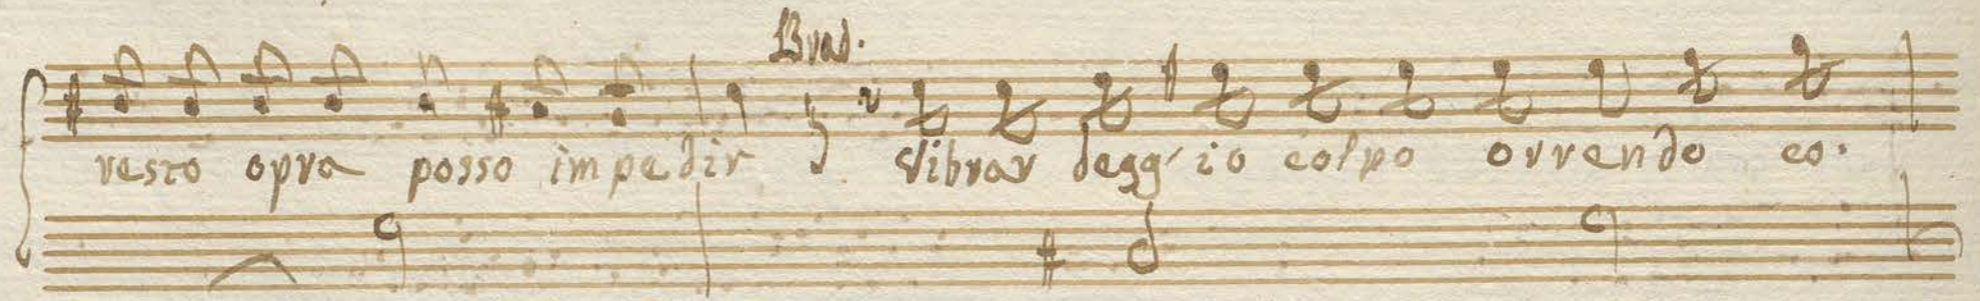 Brad.
resto opra posso impedir vibrar degg'io colpo orrendo co.